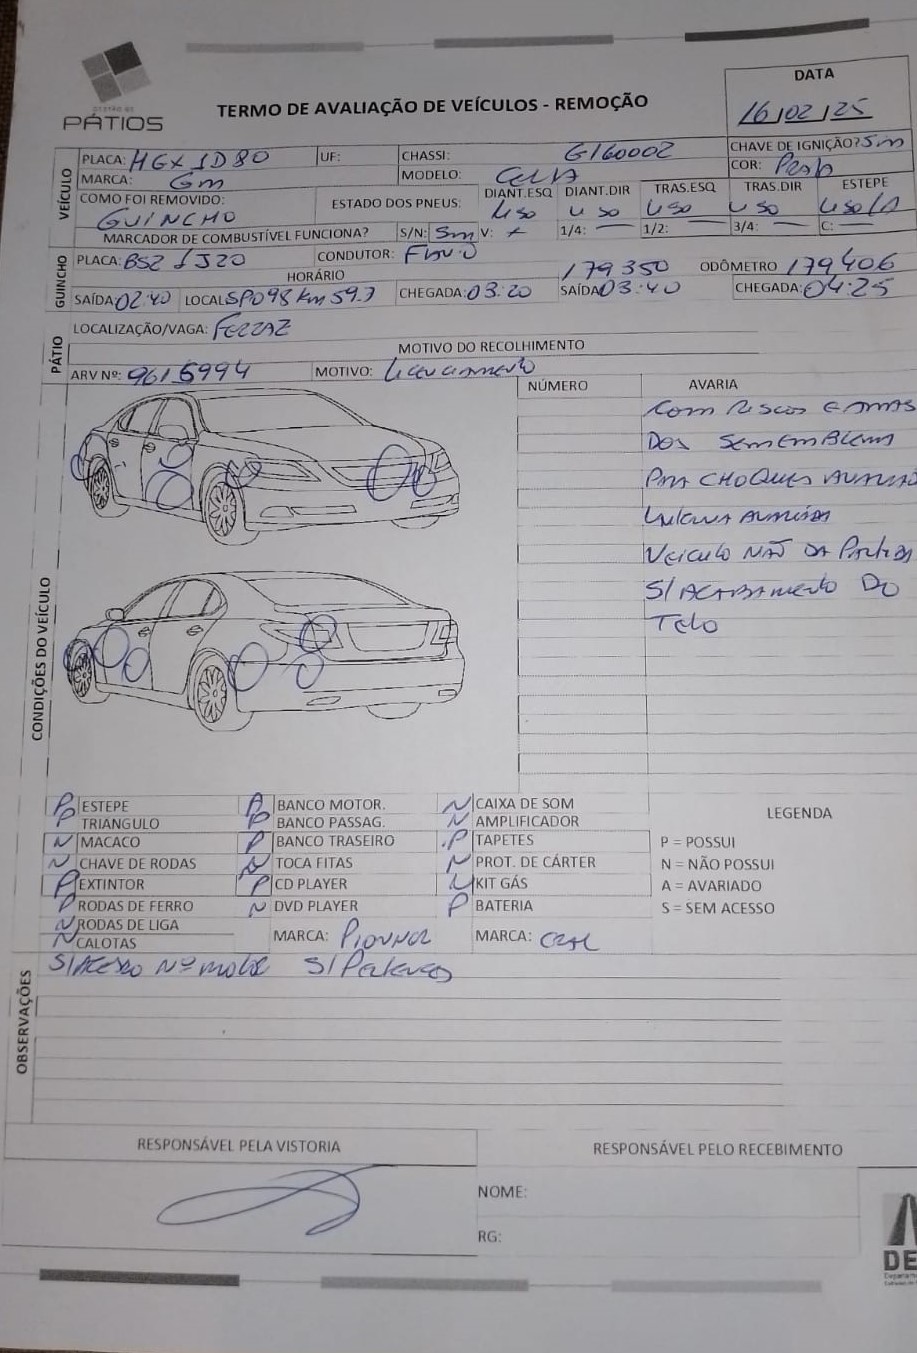 GESTÃO DE
PÁTIOS
TERMO DE AVALIAÇÃO DE VEÍCULOS - REMOÇÃO
DATA
16/02/25
VEÍCULO
PLACA: HGX 1D80 UF: CHASSI: G160002 CHAVE DE IGNIÇÃO? Sim
MARCA: Gm MODELO: Celta COR: Prata
COMO FOI REMOVIDO: ESTADO DOS PNEUS: DIANT.ESQ DIANT.DIR TRAS.ESQ TRAS.DIR ESTEPE
GUINCHO uso uso uso uso uso
MARCADOR DE COMBUSTÍVEL FUNCIONA? S/N: Sim V: 1/4: 1/2: 3/4: C:
GUINCHO
PLACA: BSZ 1J20 CONDUTOR: 179350 ODÔMETRO 179406
HORÁRIO
SAÍDA 02:40 LOCAL SP098 Km 59.7 CHEGADA: 03:20 SAÍDA 03:40 CHEGADA: 04:25
PÁTIO
LOCALIZAÇÃO/VAGA: FERRAZ
MOTIVO DO RECOLHIMENTO
ARV Nº: 9615994 MOTIVO: Licenciamento
CONDIÇÕES DO VEÍCULO
NÚMERO AVARIA
Com Riscos e amas
DOS SEM EMBLEMA
PARACHOQUES AVARIADO
LANTERNA AVARIADA
Veiculo NÃO DA Partida
S/ ACABAMENTO DO
TETO
P ESTEPE P BANCO MOTOR. N CAIXA DE SOM LEGENDA
P TRIANGULO P BANCO PASSAG. N AMPLIFICADOR
N MACACO P BANCO TRASEIRO P TAPETES P = POSSUI
N CHAVE DE RODAS N TOCA FITAS N PROT. DE CÁRTER N = NÃO POSSUI
P EXTINTOR P CD PLAYER N KIT GÁS A = AVARIADO
P RODAS DE FERRO N DVD PLAYER P BATERIA S = SEM ACESSO
N RODAS DE LIGA
N CALOTAS MARCA: Pioneer MARCA: CRAL
OBSERVAÇÕES
S/ Acesso Nº motor S/ Pertences
RESPONSÁVEL PELA VISTORIA RESPONSÁVEL PELO RECEBIMENTO
NOME:
RG:
DE